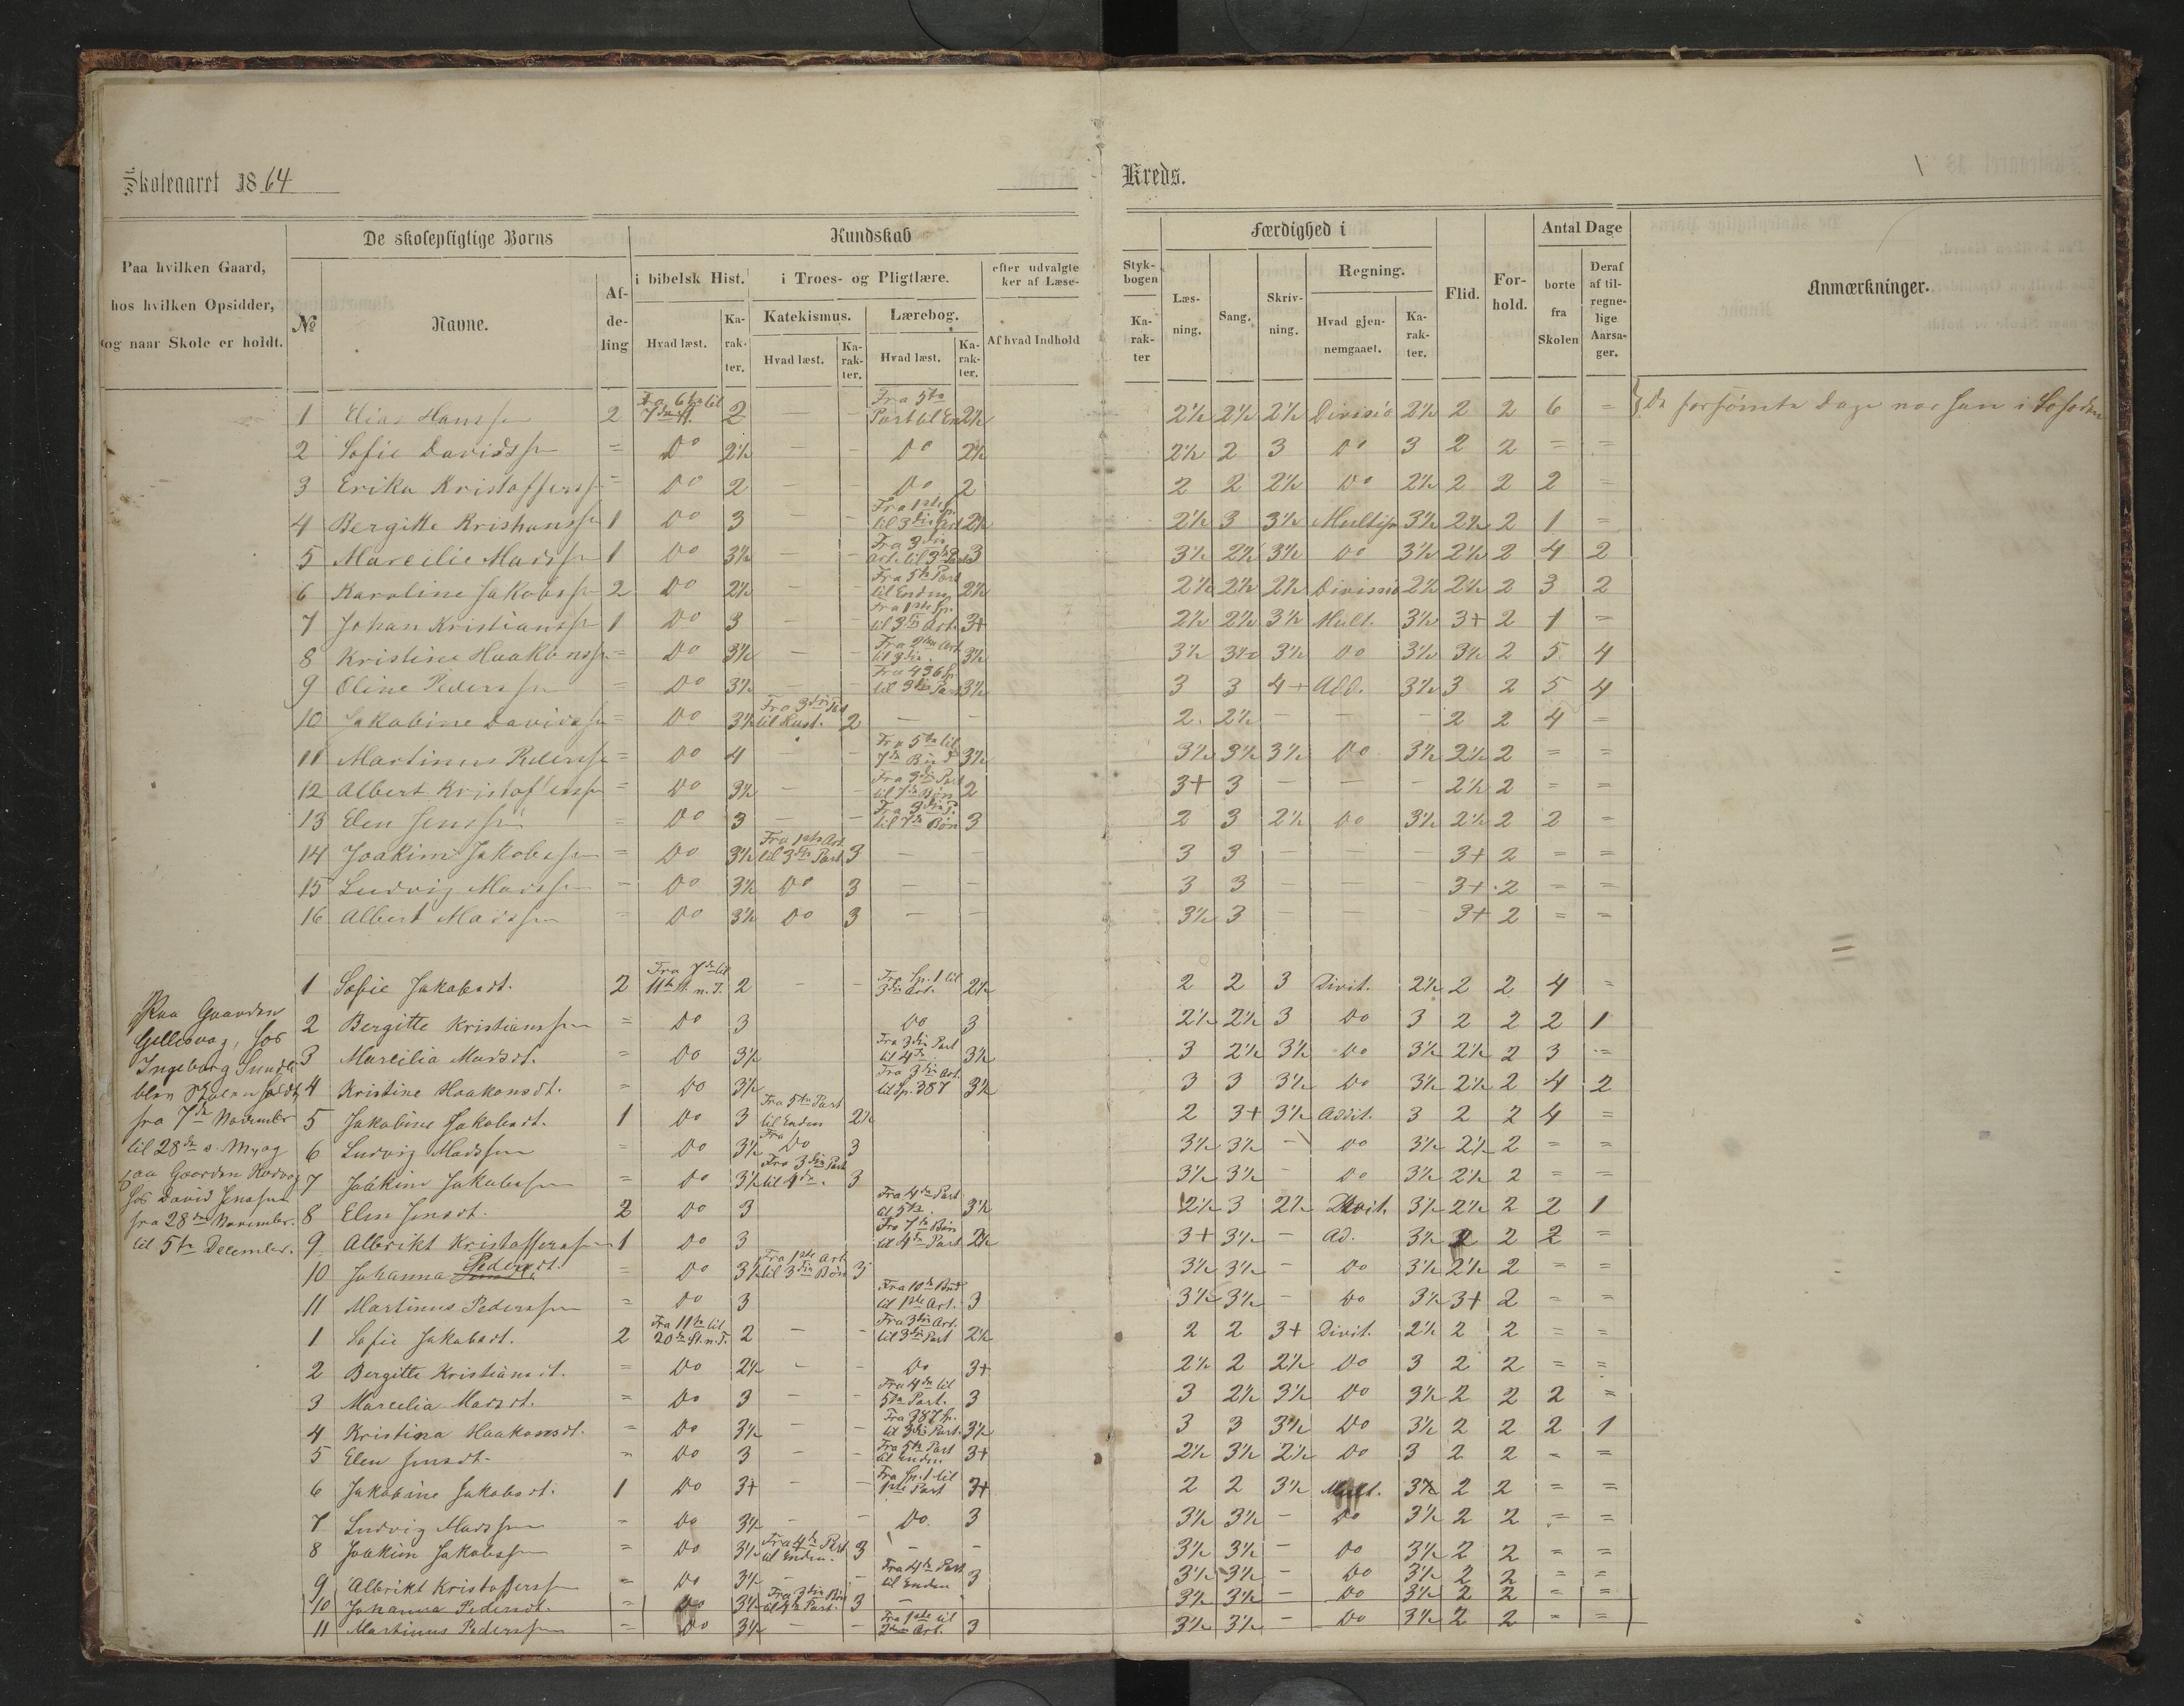 Skoleaaret 1864
Kreds.
Paa hvilken Gaard,
hos hvilken Opsidder,
og naar Skole er holdt.
De skolepligtige Børns
№
Navne.
Af-
de-
ling
Kundskab
i bibelsk Hist.
Hvad læst.
Ka-
rak-
ter.
i Troes- og Pligtlære.
Katekismus.
Hvad læst.
Ka-
rak-
ter.
Lærebog.
Hvad læst.
Ka-
rak-
ter.
efter udvalgte
ker af Læse-
Af hvad Indhold
Styk-
bogen
Ka-
rak-
ter
Færdighed i
Læs-
ning.
Sang.
Skriv-
ning.
Regning.
Hvad gjen-
nemgaaet.
Ka-
rak-
ter.
Flid.
For-
hold.
Antal Dage
borte
fra
Skolen
Deraf
af til-
regne-
lige
Aarsa-
ger.
Anmærkninger.
1 Elias Hanssen 2 Fra 6te til 7de St. 2 — — Fra 5te Part til En 2½ 2½ 2½ 2½ Divisio 2½ 2 2 6 = De forsømte Dage var han i Lofoden
2 Sofie Davids = Do 2½ — — Do 2½ 2½ 2 3 Do 3 2 2 = =
3 Erika Kristoffers = Do 2 — — Do 2 2 2 2½ Do 2½ 2 2 2 =
4 Bergitte Krishans 1 Do 3 — — Fra 1ste Sp. til 3die Art 2½ 2½ 3 3½ Multip 3½ 2½ 2 1 =
5 Mareilie Mads 1 Do 3½ — — Fra 3die Art. til 3die Part 3 3½ 2½ 3½ Do 3½ 2½ 2 4 2
6 Karoline Jakobs 2 Do 2½ — — Fra 5te Part til Enden 2½ 2½ 2½ 2½ Division 2½ 2½ 2 3 2
7 Johan Kristians 1 Do 3 — — Fra 1ste Sp. til 3die Art. 3+ 2½ 2½ 3½ Mult. 3½ 3+ 2 1 =
8 Kristine Haakons = Do 3½ — — Fra 2den Art til 3die. 3½ 3½ 3½ 3½ Do 3½ 3½ 2 5 4
9 Oline Peders = Do 3½ — — Fra 436 Sp til 3die Part 3½ 3 3 4+ Add. 3½ 3 2 5 4
10 Jakobine Davids = Do 3½ Fra 3die Part til 2 — — 2 2½ — — — 2 2 4 =
11 Martinus Peders = Do 4 — — Fra 5te til 7de Bud 3½ 3½ 3½ 3½ Do 3½ 2½ 2 = =
12 Albert Kristoffers = Do 3½ — — Fra 3die Part til 7de Bøn 2 3+ 3 — — — 2½ 2 = =
13 Elen Jens = Do 3 — — Fra 3die P. til 7de Bøn 3 2 3 2½ Do 3½ 2½ 2 2 =
14 Joakim Jakobs = Do 3½ Fra 1ste Art. til 3die Part 3 — — 3 3 — — — 3+ 2 = =
15 Ludvig Mads = Do 3½ Do 3 — — 3 3 — — — 3+ 2 = =
16 Albert Mads = Do 3½ Do 3 — — 3½ 3 — — — 3+ 2 = =
Paa Gaarden
Gellesvog, hos
Ingeborg
blev Skolen holdt
fra 7de November
til 28de s. M, og
paa Gaarden
hos David Jenssen
fra 28de November.
til 5te December.
1 Sofie Jakobsdt. 2 Fra 7de til 11te St. n. T. 2 — — Fra Sp. 1 til 3die Art. 2½ 2 2 3 Divit. 2½ 2 2 4 =
2 Bergitte Kristians = Do 3 Do 3 2½ 2½ 3 Do 3 2 2 2 1
3 Mareilia Madsdt. = Do 3½ Fra 3die Part til 4de 3½ 3 2½ 3½ Do 3½ 2½ 2 3 =
4 Kristine Haakonsdt. = Do 3½ Fra 3die Art. til Sp. 387 3½ 3 3 3½ Do 3½ 2½ 2 4 2
5 Jakobine Jakobsdt. 1 Do 3 Fra 5te Part til Enden 2½ 2 3+ 3½ Addit. 3 2 2 4 =
6 Ludvig Madssen = Do 3½ Fra Do 3 3½ 3½ — Do 3½ 2½ 2 = =
7 Joakim Jakobs = Do 3½ Fra 3die Part til 4de. 3 3½ 3½ — Do 3½ 2½ 2 = =
8 Elen Jensdt. 2 Do 3 Fra 4de Part til 5te. 3½ 2½ 3 2½ Divit. 3½ 2½ 2 2 1
9 Albrikt Kristoffers 1 Do 3 Fra 7de Bøn til 4de Part 2½ 3+ 3½ — Ad. 3½ 2 2 2 =
10 Johanna Pedersdt. = Do 3½ Fra 1ste Art. til 3die Bøn 3 3½ 3½ — Do 3½ 2½ 2 = =
11 Martinus Pederssen = Do 3 Fra 10de Bud til 1ste Art. 3 3½ 3½ — Do 3½ 3+ 2 = =
1 Sofie Jakobsdt. 2 Fra 11te til 20de St. n. T. 2 — — Fra 3die Art. til 3die Part 2½ 2 2 3+ Divit. 2½ 2 2 = =
2 Bergitte Kristiansdt. = Do 2½ — — Do 3+ 2½ 2 2½ Do 3 2 2 = =
3 Mareilia Madsdt. = Do 3 — — Fra 4de til 5te Part. 3 3 2½ 3½ Do 3½ 2 2 2 =
4 Kristina Haakonsdt. = Do 3½ — — Fra 387 Sp. til 3die Part. 3½ 3 3 3½ Do 3½ 2 2 2 1
5 Elen Jensdt. = Do 3 — — Fra 5te Part til Enden 3+ 2½ 3½ 2½ Do 3 2 2 = =
6 Jakobine Jakobsdt. 1 Do 3+ — — Fra Sp. 1 til 1ste Part 3+ 2 2 3½ Mult. 3½ 2 2 = =
7 Ludvig Mads = Do 3½ — — Do. 3 3½ 3½ — Do 3½ 2 2 = =
8 Joakim Jakobs = Do 3½ Fra 4de Part til Enden. 3 — — 3½ 3½ — Do 3½ 2 2 = =
9 Albrikt Kristoffers = Do 3½ — — Fra 4de Part til Enden 3 3½ 3½ — Do 3½ 2 2 = =
10 Johanna Pedersdt. = Do 3½ Fra 3die Bøn til 4de Part. 3 — 3½ 3½ — Do 3½ 2 2 = =
11 Martinus Peders = Do 3½ — — Fra 1ste til 2den Art. 3 3½ 3½ — Do 3½ 2 2 = =